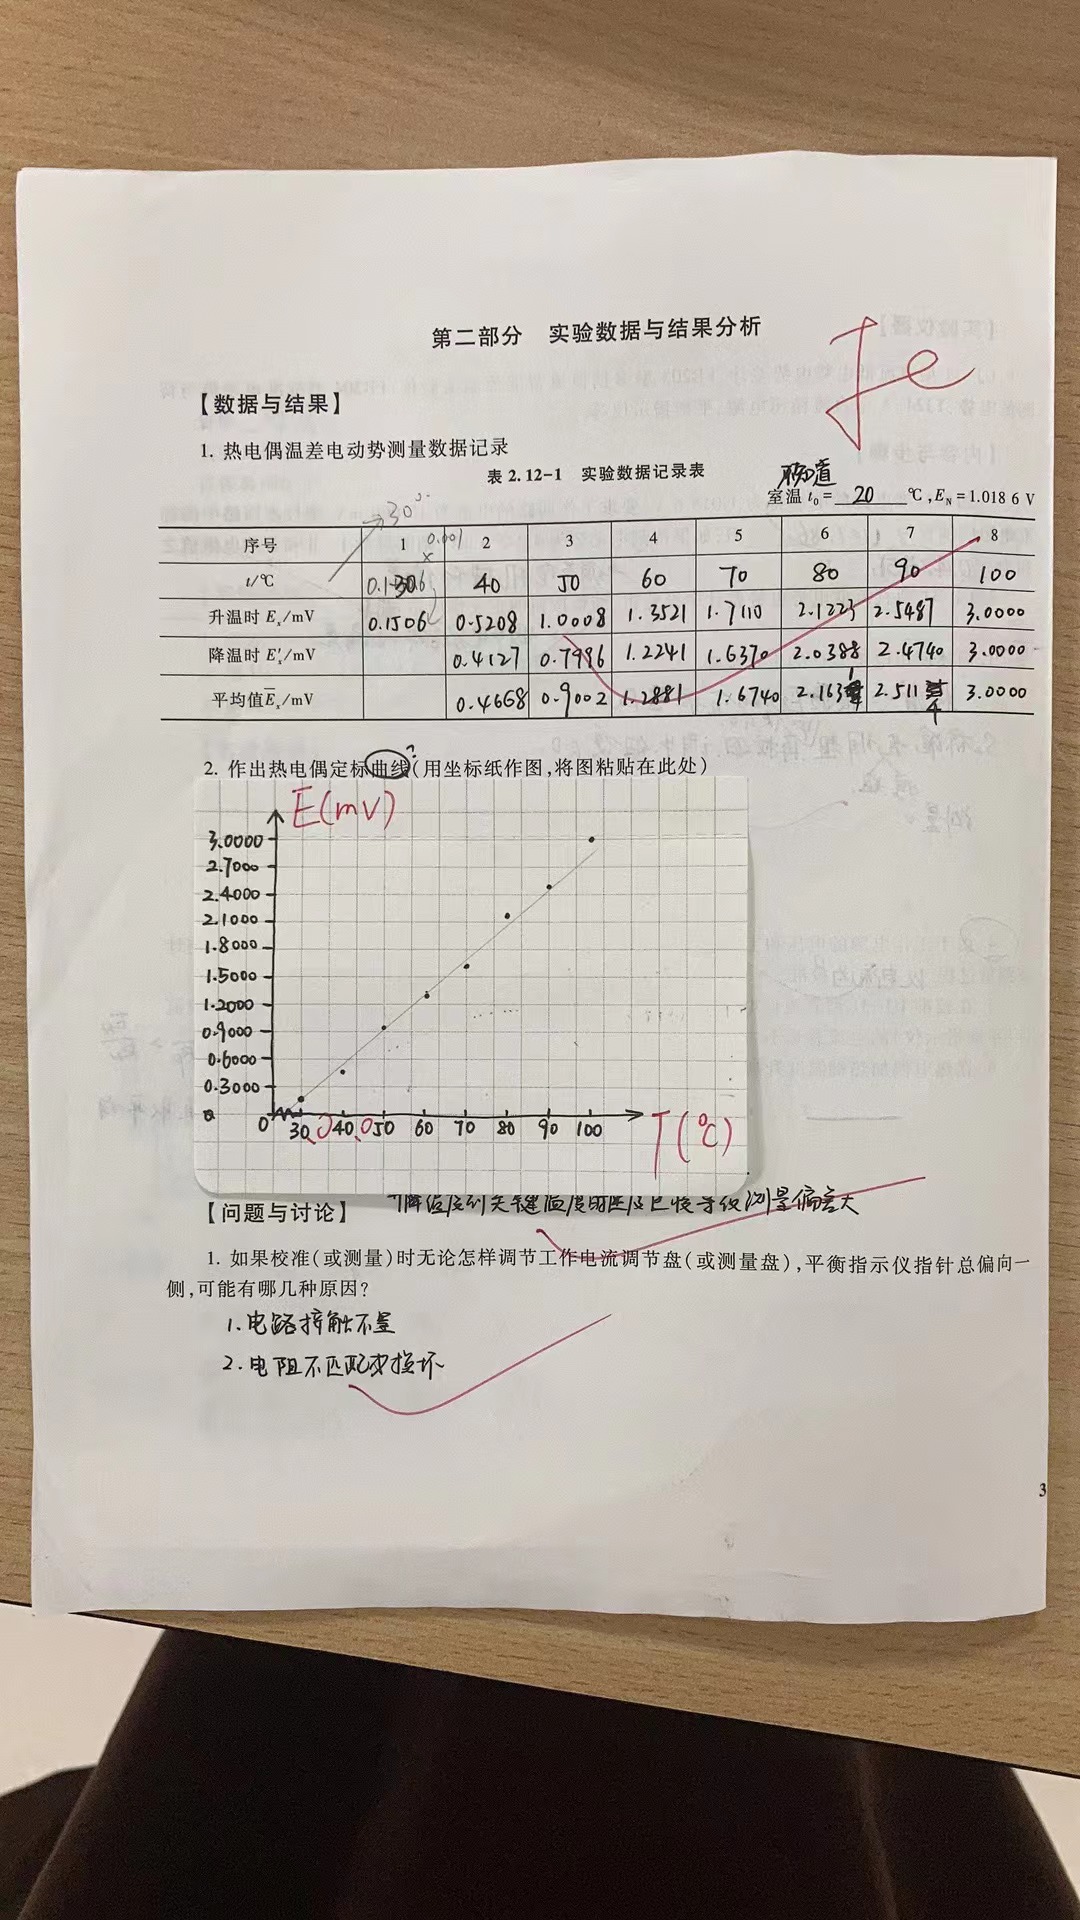 第二部分 实验数据与结果分析
【数据与结果】
1. 热电偶温差电动势测量数据记录
表 2.12-1 实验数据记录表
室温 t₀= 20 ℃,E_N=1.018 6 V
30°
0.001
序号 1 2 3 4 5 6 7 8
t/℃ 30 40 50 60 70 80 90 100
升温时 Eₓ/mV 0.1506 0.5208 1.0008 1.3521 1.7110 2.1223 2.5487 3.0000
降温时 E′ₓ/mV 0.4127 0.7996 1.2241 1.6370 2.0388 2.4740 3.0000
平均值 E̅ₓ/mV 0.4668 0.9002 1.2881 1.6740 2.163 2.511 3.0000
2. 作出热电偶定标曲线(用坐标纸作图,将图粘贴在此处)
E(mV)
3.0000
2.7000
2.4000
2.1000
1.8000
1.5000
1.2000
0.9000
0.6000
0.3000
0 30.0 40.0 50 60 70 80 90 100 T(℃)
【问题与讨论】
测量偏差大
1. 如果校准(或测量)时无论怎样调节工作电流调节盘(或测量盘),平衡指示仪指针总偏向一
侧,可能有哪几种原因?
1.电路接触不良
2.电阻不匹配或损坏
3